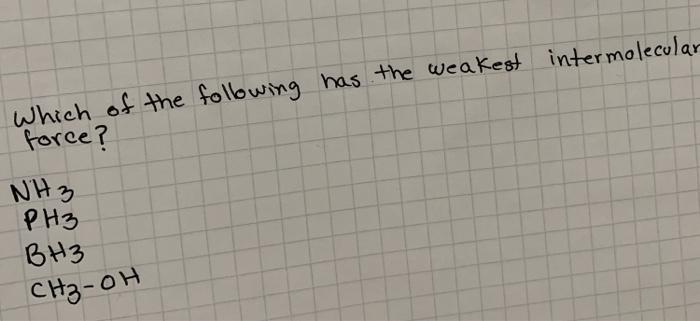 Which of the following has the weakest intermolecular
force?
NH3
PH3
BH3
CH3-OH